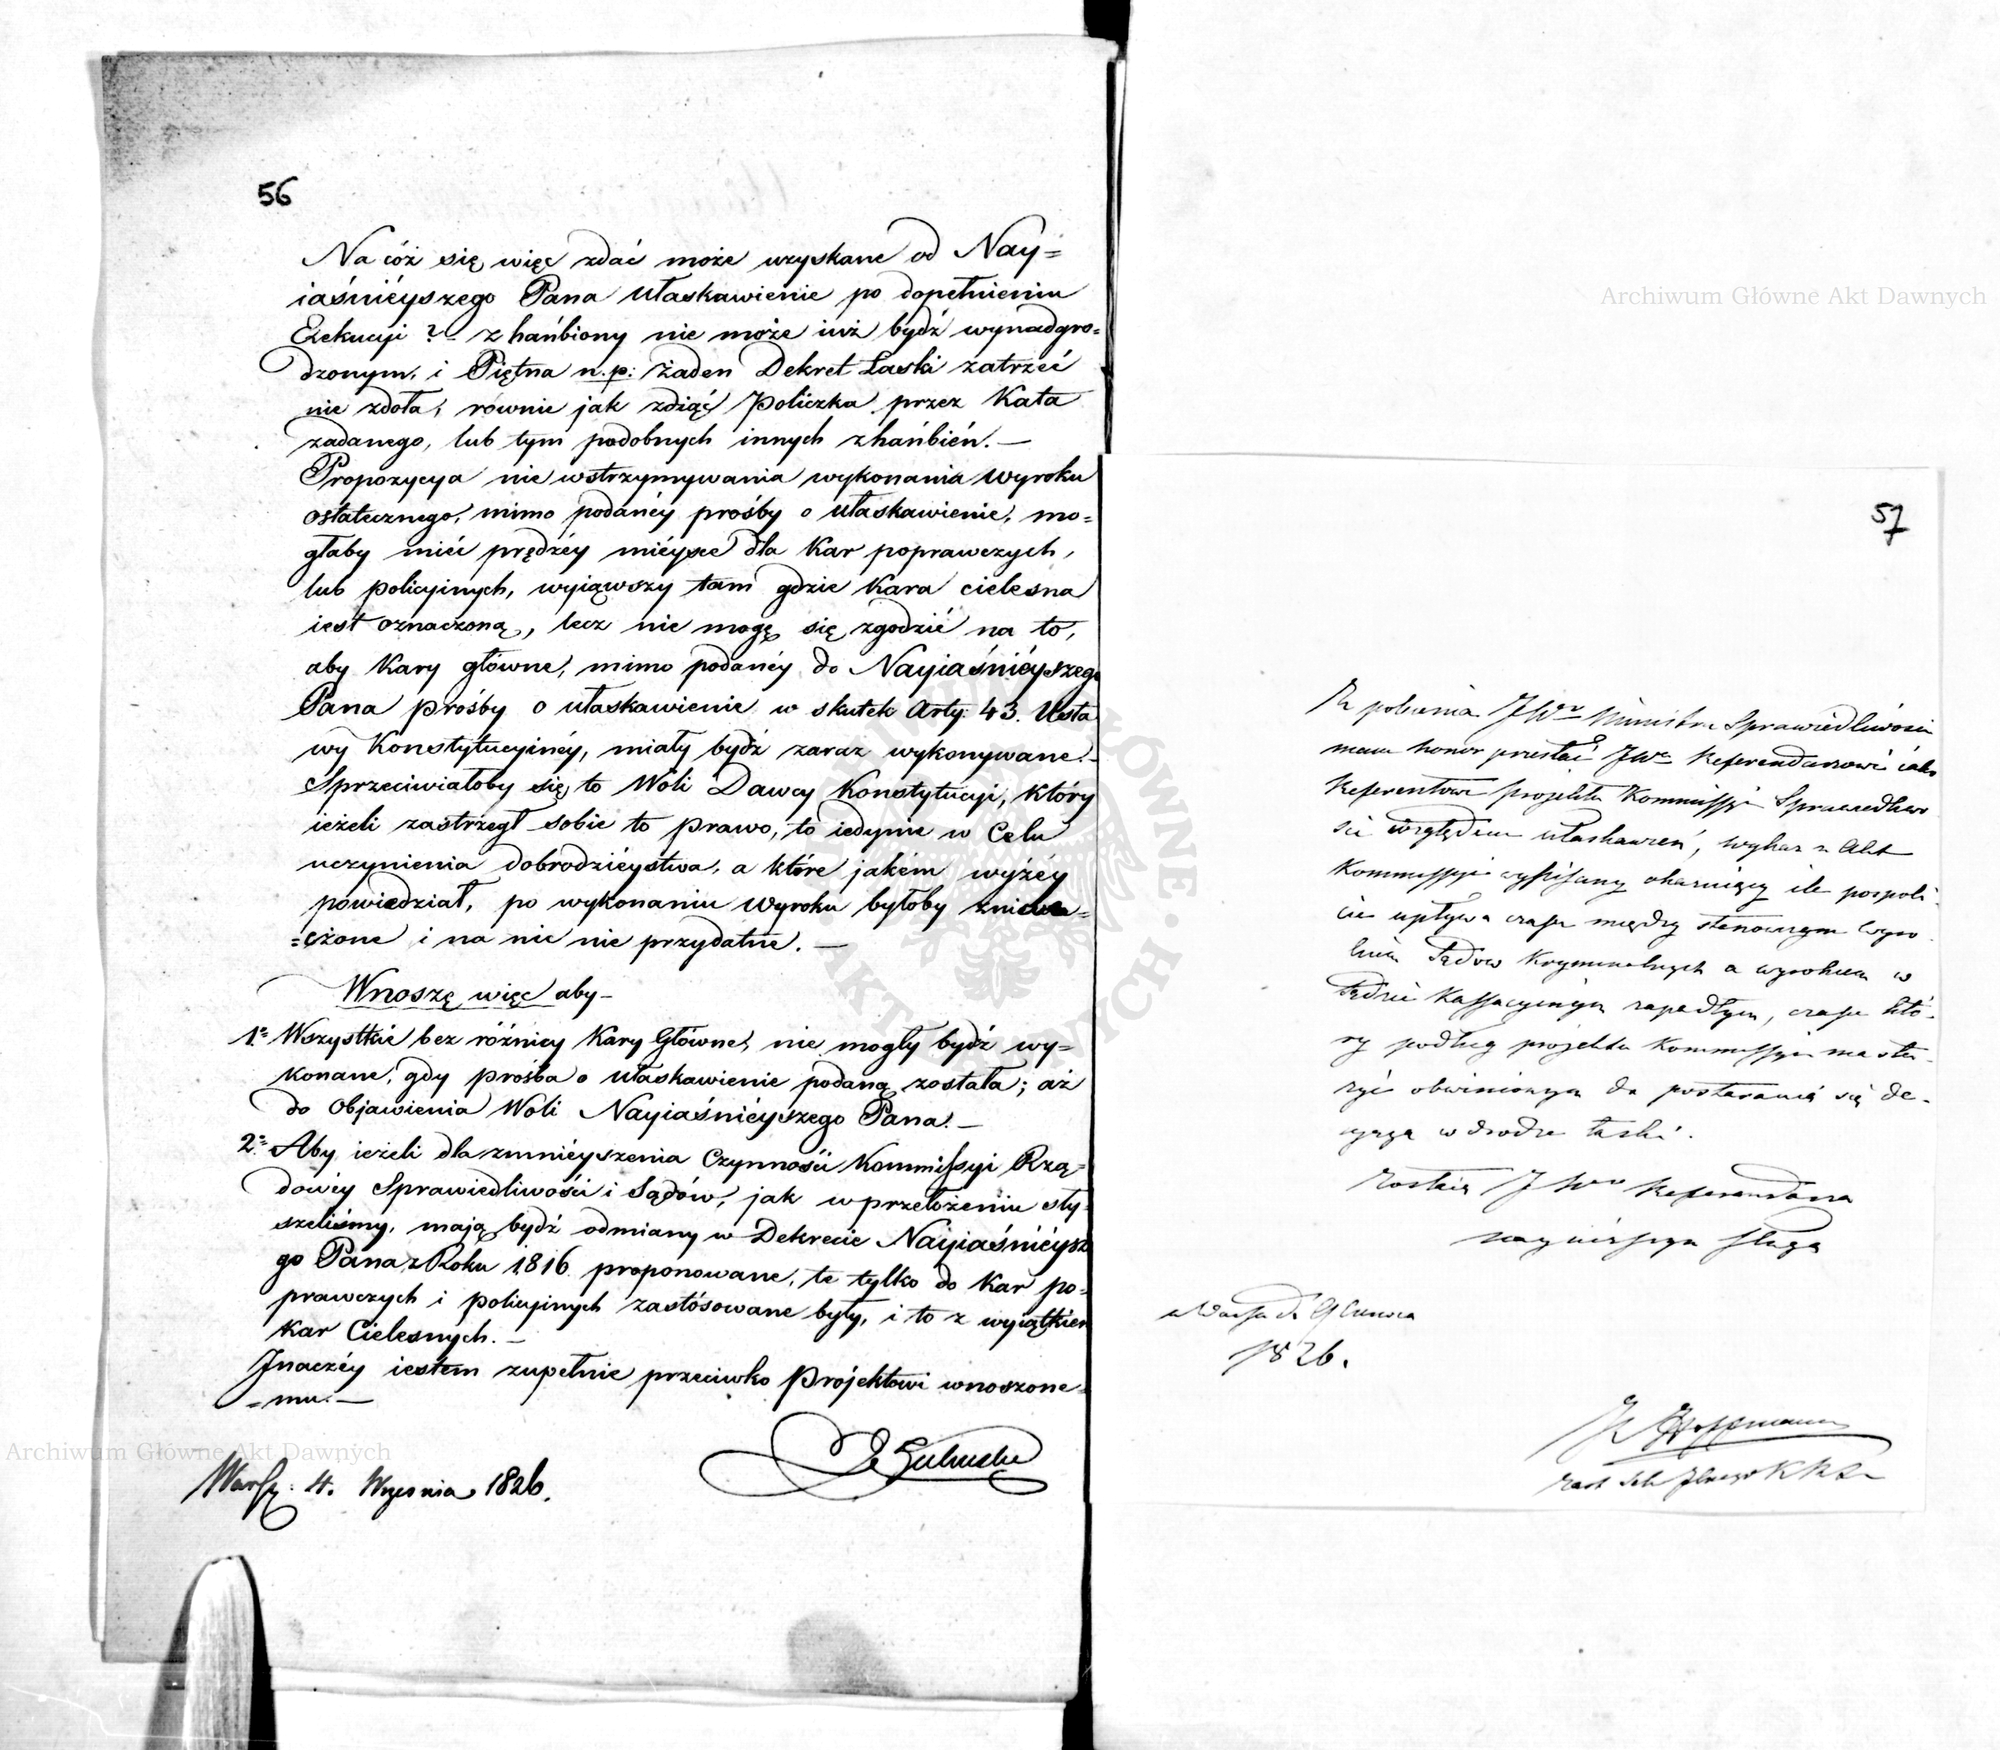 56
Na cóż się więc zdać może uzyskane od Nay=
iaśnieyszego Pana ułaskawienie po dopełnieniu
Exekucyi ? zhańbiony nie może iuż bydź wynadgro=
dzonym, i Piętna n.p: żaden Dekret Łaski zatrzeć
nie zdoła, równie jak zdiąć Policzka przez Kata
zadanego, lub tym podobnych innych zhańbień. —
Propozycya nie wstrzymywania wykonania wyroku
ostatecznego, mimo podanéy prośby o ułaskawienie, mo=
głaby mieć prędzéy miéysce dla Kar poprawczych,
lub policyinych, wyiąwszy tam gdzie Kara cielesna
iest oznaczoną, lecz nie mogę się zgodzić na to,
aby Kary główne, mimo podanéy do Nayiaśniéyszego
Pana prośby o ułaskawienie w skutek Arty: 43. Usta
wy Konstytucyinéy, miały bydź zaraz wykonywane. —
Sprzeciwiałoby się to Woli Dawcy Konstytucyi, który
ieżeli zastrzegł sobie to prawo, to iedynie w Celu
uczynienia dobrodziéystwa, a które jakem wyżéy
powiedział, po wykonaniu wyroku byłoby zniwe=
=czone i na nic nie przydatne. —
Wnoszę więc aby —
1º Wszystkie bez różnicy Kary Główne, nie mogły bydź wy=
konane, gdy prośba o ułaskawienie podaną została; aż
do Objawienia Woli Nayiaśniéyszego Pana. —
2º Aby ieżeli dla zmniéyszenia Czynności Kommissyi Rzą=
dowéy Sprawiedliwości i Sądów, jak w przełożeniu sły
szeliśmy, mają bydź odmiany w Dekrecie Nayiaśniéysz
go Pana z Roku 1816 proponowane, te tylko do Kar po=
prawczych i policyinych zastósowane były, i to z wyiątkiem
Kar Cielesnych. —
Jnaczéy iestem zupełnie przeciwko Projektowi wnoszone=
=mu. —
Warsz: 4. Wrzesnia 1826.
57
Z polecenia JWo Ministra Sprawiedliwosci
mam honor przesłać JWu Referendarzowi iako
Referentowi projektu Kommissyi Sprawiedliwo
sci względem ułaskawień, wykaz z Akt
Kommissyi wypisany okazuiący ile pospoli
cie upływa czasu między stanowczym wyro
kiem Sądów Kryminalnych a wyrokiem w
Sądzie Kassacyinym zapadłym, czasu któ=
ry podług projektu Kommissyi ma słu=
żyć obwinionym do postarania się de=
cyzyą w drodze łaski.
Zostaię JWo Referendarza
nayniższym sługą
w Warsza d. 9 Czerwca
1826.
Hoffmann